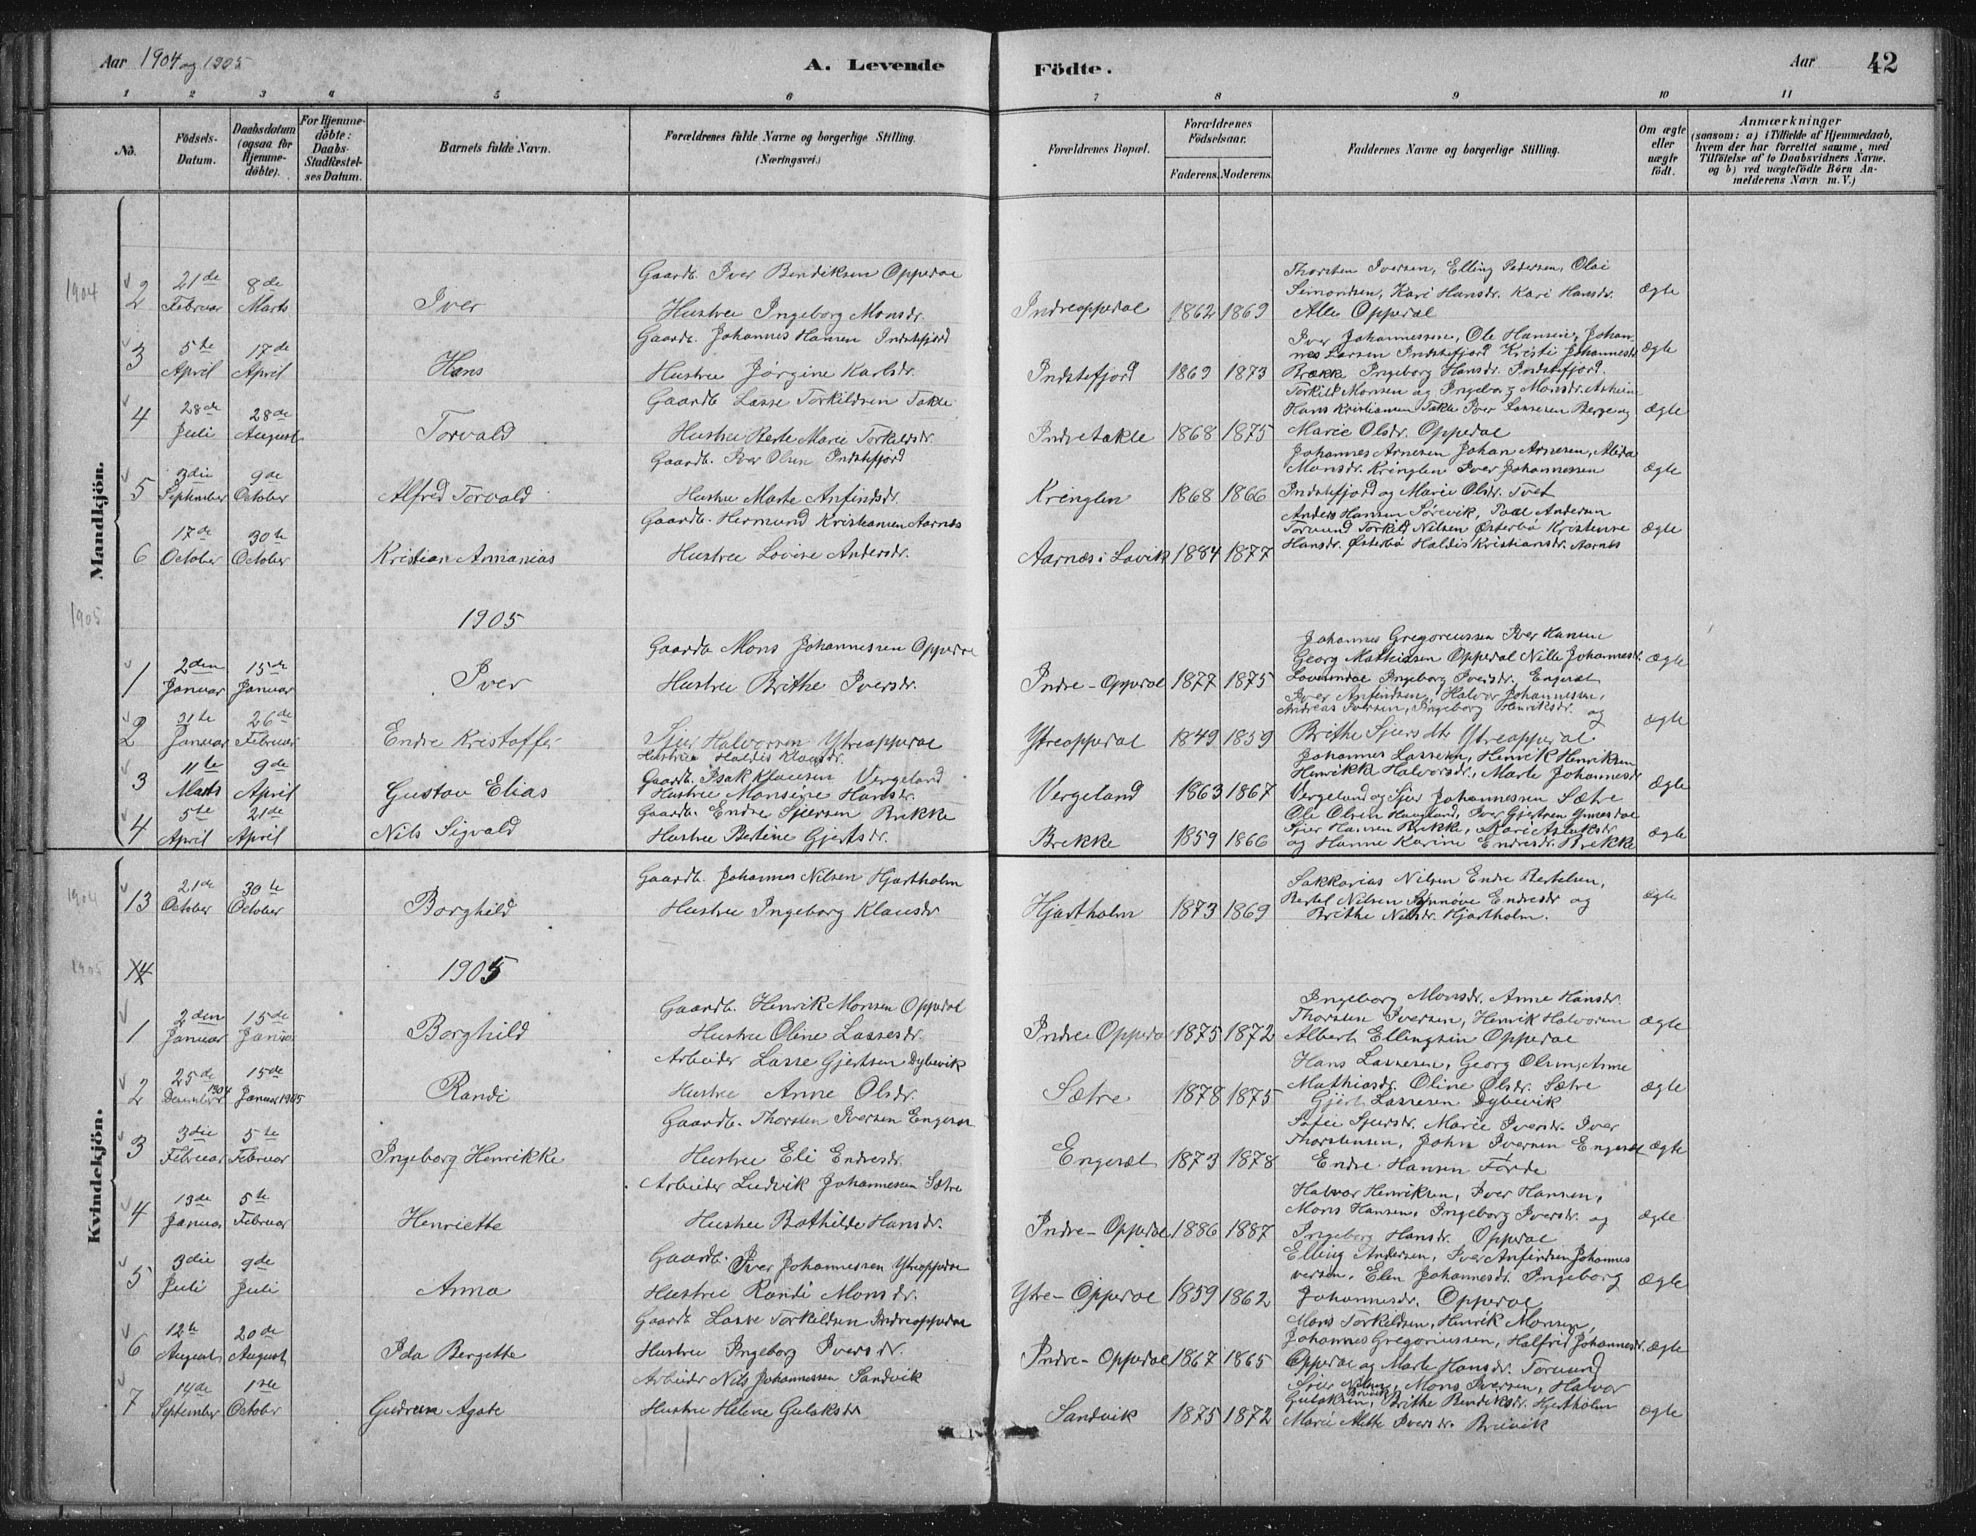 Aar 1904 og 1905
A. Levende
Födte.
Aar
42
1 2 3 4 5 6 7 8 9 10 11
No.
Födsels-Datum.
Daabsdatum (ogsaa for Hjemme-döbte).
For Hjemme-döbte: Daabs-Stadfæstel-ses Datum.
Barnets fulde Navn.
Forældrenes fulde Navne og borgerlige Stilling. (Næringsvei.)
Forældrenes Bopæl.
Forældrenes Födselsaar.
Faderens. Moderens.
Faddernes Navne og borgerlige Stilling.
Om ægte eller uægte födt.
Anmærkninger
(saasom: a) i Tilfælde af Hjemmedaab, hvem der har forrettet samme, med Tilföielse af to Daabsvidners Navne, og b) ved uægtefödte Börn An-melderens Navn m. V.)
Mandkjön.
1904
2 21de Februar 8de Marts Iver Gaardb. Iver Bendiksen Oppedal
Hustru Ingeborg Monsdr. Indreoppedal 1862 1869 Thorsten Iversen, Elling Pedersen, Olai
Simonsen, Kari Hansdr. Kari Hansdr.
Alle Oppedal ægte
3 5te April 17de April Hans Gaardb. Johannes Hansen Indstefjord
Hustru Jørgine Karlsdr. Indstefjord 1869 1873 Iver Johannessen, Ole Hansen, Johan
nes Larsen Indstefjord Kristi Johannesdr
Brække Ingeborg Hansdr. Indstefjord. ægte
4 28de Juli 28de August Torvald Gaardb. Lasse Torkildsen Takle
Hustru Berte Marie Torkildsdr. Indretakle 1868 1875 Torkild Monsen og Ingeborg Monsdr.
Hans Kristiansen Takle Iver Lassesen Berge og
Marie Olsdr. Oppedal ægte
5 3die September 9de October Alfred Torvald Gaardb. Iver Olsen Indstefjord
Hustru Marte Anfindsdr. Kringlen 1868 1866 Johannes Arnesen Johan Arnesen, Alida
Monsdr. Kringlen Iver Johannessen
Indstefjord og Marie Olsdr. Tvet ægte
6 17de October 30te October Kristian Annanias Gaardb. Hermund Kristiansen Aarnæs
Hustru Lovise Andersdr. Aarnæs i Lavik 1884 1877 Anders Hansen Sørevik, Paul Andersen
Torvund Torkild Nilsen Østerbø Kristense
Hansdr. Østerbø Haldis Kristiansdr. Aarnes ægte
1905
1905
1 2den Januar 15de Januar Iver Gaardb. Mons Johannessen Oppedal
Hustru Brithe Iversdr. Indre-Oppedal 1877 1875 Johannes Gregoriussen Iver Hansen
Georg Mathiasen Oppedal Nille Johannesdr.
Ingeborg Iversdr. Engesæt ægte
2 31te Januar 26de Februar Endre Kristoffer Sjur Halvorsen Ytreoppedal
Hustru Haldis Klausdr. Ytreoppedal 1849 1859 Iver Anfindsen, Halvor Johannessen,
Andreas Iversen, Ingeborg Henriksdr. og
Brithe Sjursdtr Ytreoppedal ægte
3 11te Marts 9de April Gustav Elias Gaardb. Isak Klausen Vergeland
Hustru Monsine Hansdr. Vergeland 1863 1867 Johannes Lassesen, Henrik Henriksen
Henrikke Halvorsdr., Marte Johannesdr
Vergeland og Sjur Johannessen Sætre ægte
4 5te April 21de April Nils Sigvald Gaardb. Endre Sjursen Brekke
Hustru Bertine Gjertsdr. Brekke 1859 1866 Ole Olsen Haugland, Iver Gjertsen
Sjur Hansen Brekke, Kari Aslaksdr
og Hanne Karine Endresdr. Brekke ægte
Kvindekjön.
1904
13 21de October 30te October Borghild Gaardb. Johannes Nilsen Hjartholm
Hustru Ingeborg Klausdr Hjartholm 1873 1869 Sakkarias Nilsen Endre Bertelsen,
Bertel Nilsen Synnøve Endresdr og
Brithe Nilsdr. Hjartholm. ægte
1905
14 1905
1 2den Januar 15de Januar Borghild Gaardb. Henrik Monsen Oppedal
Hustru Oline Lassesdr. Indre Oppedal 1875 1872 Ingeborg Monsdr. Anne Hansdr.
Thorsten Iversen, Henrik Halvorsen
Albert Ellingsen Oppedal ægte
2 25de December 1904 15de Januar 1905 Randi Arbeider Lasse Gjertsen Dybevik
Hustru Anne Olsdr. Sætre 1878 1875 Hans Lassesen, Georg Olsen, Anne
Mathiasdr. Oline Olsdr. Sætre
Gjert Lassesen Dybevik ægte
3 3die Februar 5te Februar Ingeborg Henrikke Gaardb. Thorsten Iversen Engesæt
Hustru Eli Endresdr. Engesæt 1873 1878 Sofie Sjursdr. Marie Iversdr. Iver
Thorstensen, John Iversen Engesæt
Endre Hansen Førde ægte
4 13de Januar 5te Februar Henriette Arbeider Ludvik Johannessen Sætre
Hustru Bothilde Hansdr. Indre-Oppedal 1886 1887 Halvor Henriksen, Iver Hansen,
Mons Hansen, Ingeborg Iversdr. og
Ingeborg Hansdr. Oppedal ægte
5 3die Juli 9de Juli Anna Gaardb. Iver Johannessen Ytreoppedal
Hustru Randi Monsdr. Ytre-Oppedal 1859 1862 Elling Andersen, Iver Anfindsen Johannes
versen, Elen Johannesdr. Ingeborg
Johannesdr. Oppedal ægte
6 12te August 20de August Ida Bergitte Gaardb Lasse Torkildsen Indreoppedal
Hustru Ingeborg Iversdr. Indre-Oppedal 1867 1865 Mons Torkildsen, Henrik Monsen,
Johannes Gregoriussen, Halfrid Johannesdr.
Oppedal og Marte Hansdr. Torvund ægte
7 14de September 1ste October Gudrun Agate Arbeider Nils Johannessen Sandvik
Hustru Helene Gulaksdr Sandvik 1875 1872 Sjur Nilsen, Mons Iversen, Halvor
Gulaksen, Brithe Bendiksdr. Hjartholm
Marie Iversdr. Breivik ægte